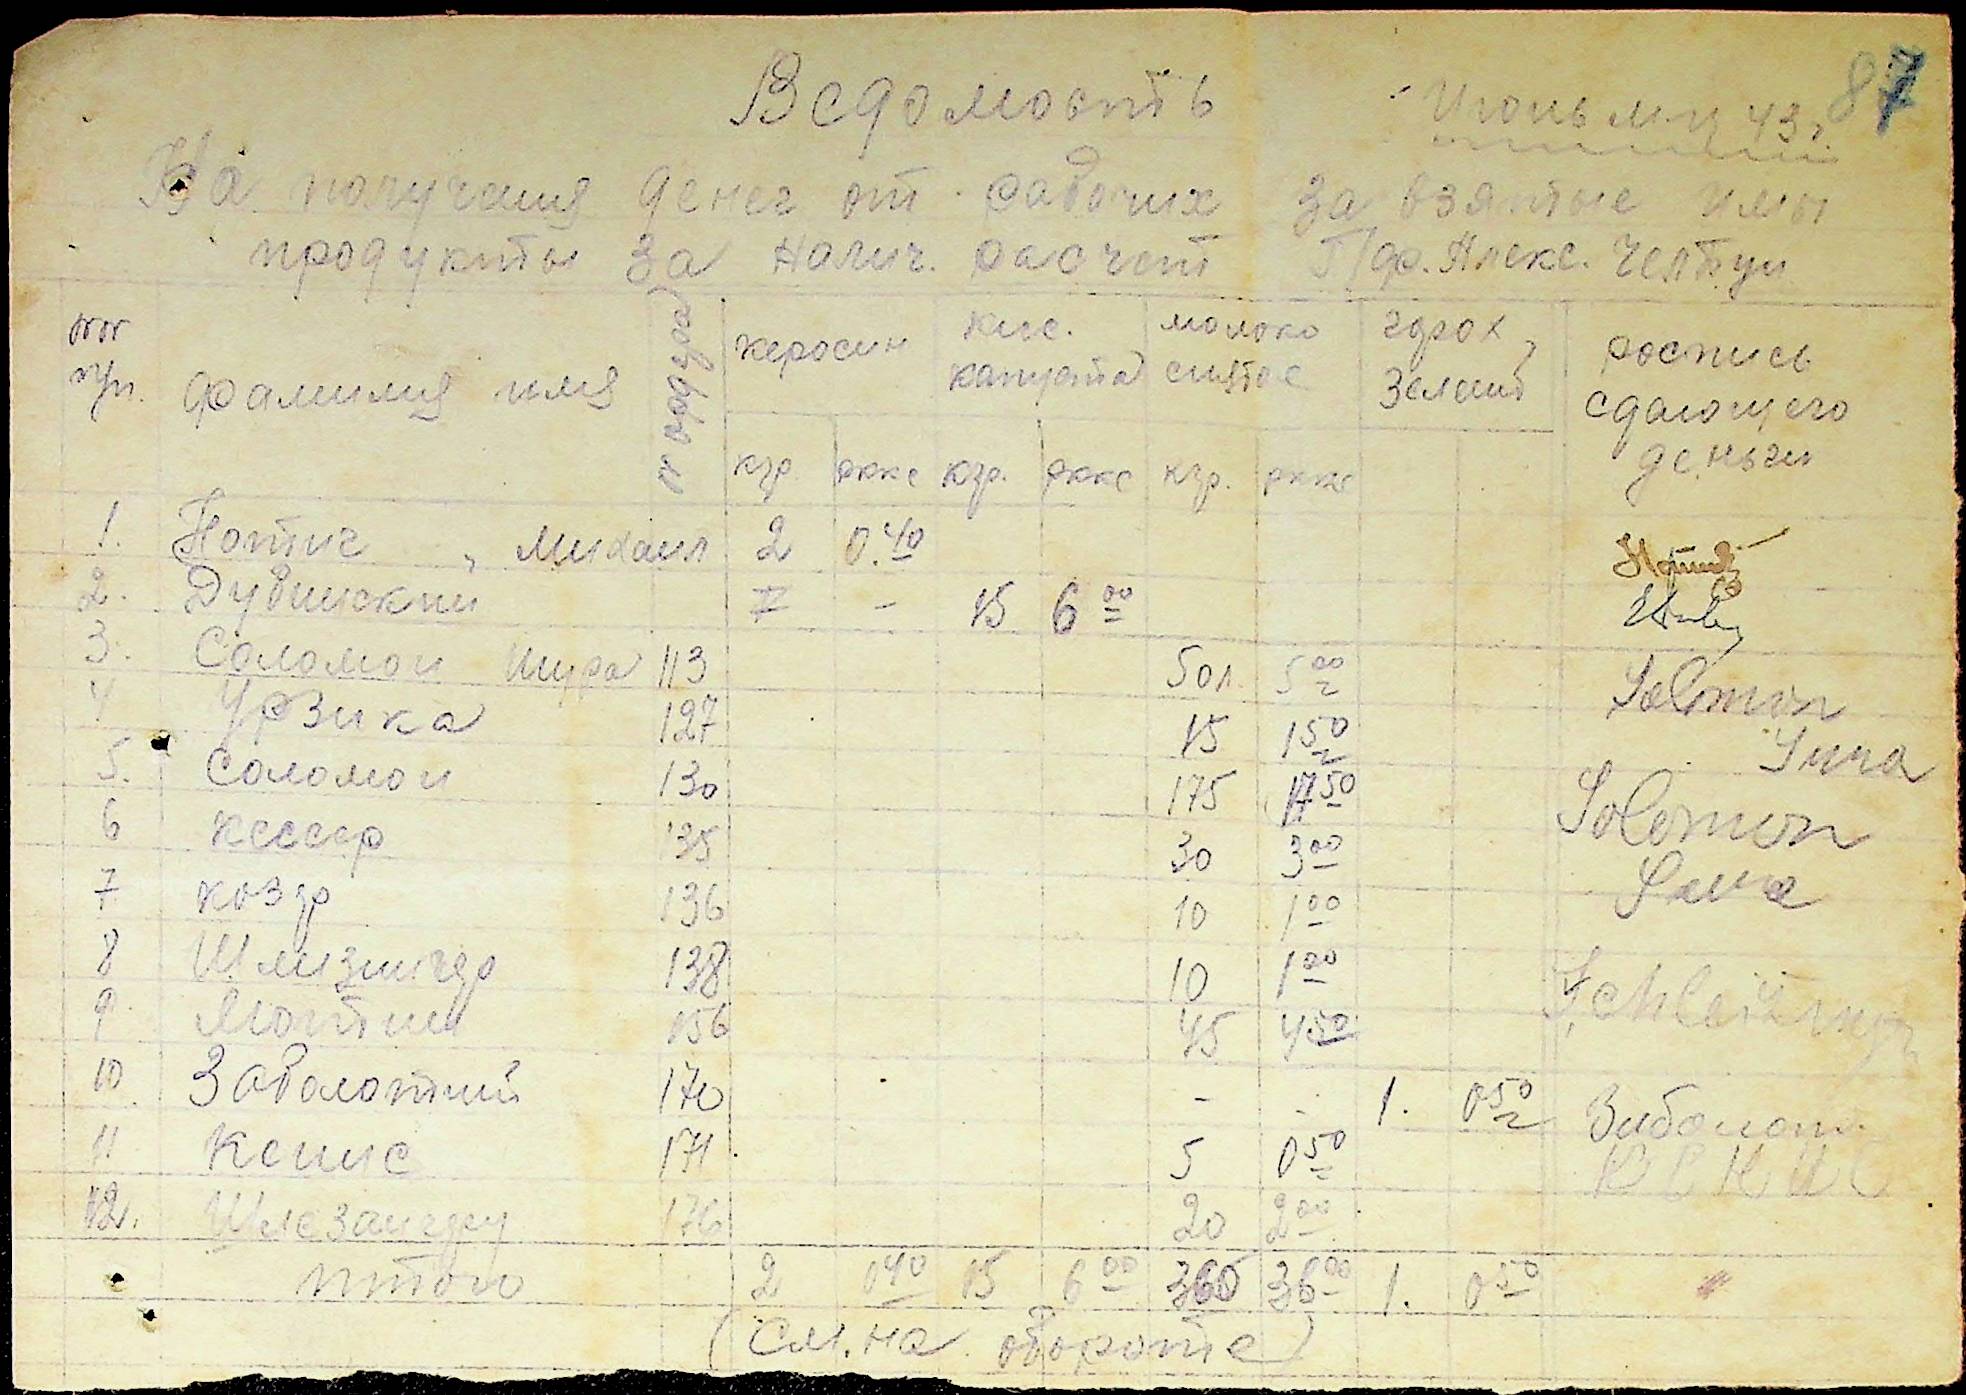 Ведомость
Июнь м-ц 43г 87
На получения денег от рабочих за взятые ими
продукты за налич. расчет Пдр. Алекс.
№№ пп. фамилия имя № ордера керосин кис. капуста молоко снятое горох зелений роспись сдающего деньги
кгр. рккс кгр. рккс кгр. рккс
1. Нотис, Михаил 2 0.40
2. Дубинский 7 - 15 6 00
3. Соломон Шура 113 50л. 5 00 Solomon
4 Урзика 127 15 1 50 Sura
5. Соломон 130 175 17 50 Solomon
6 Кессер 135 30 3 00 Sura
7 Козар 136 10 1 00
8 Шлизингер 138 10 1 00 Schleizinger
9. Мотин 156 45 4 50
10 Заболотний 170 - - 1. 0 50 Заболот.
11 Кенис 171 5 0 50 КЕНИС
12. 176 20 2 00
Итого 2 0 40 15 6 00 360 36 00 1. 0 50
(См. на обороте)